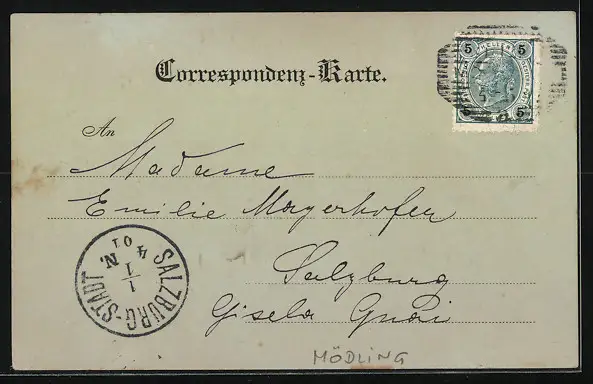 Correspondenz-Karte.
5 5
5 5
An
Madame
Emilie Mayerhofer
Salzburg
Gisela Quai
SALZBURG-STADT
1
1
4 01 N.
MÖDLING